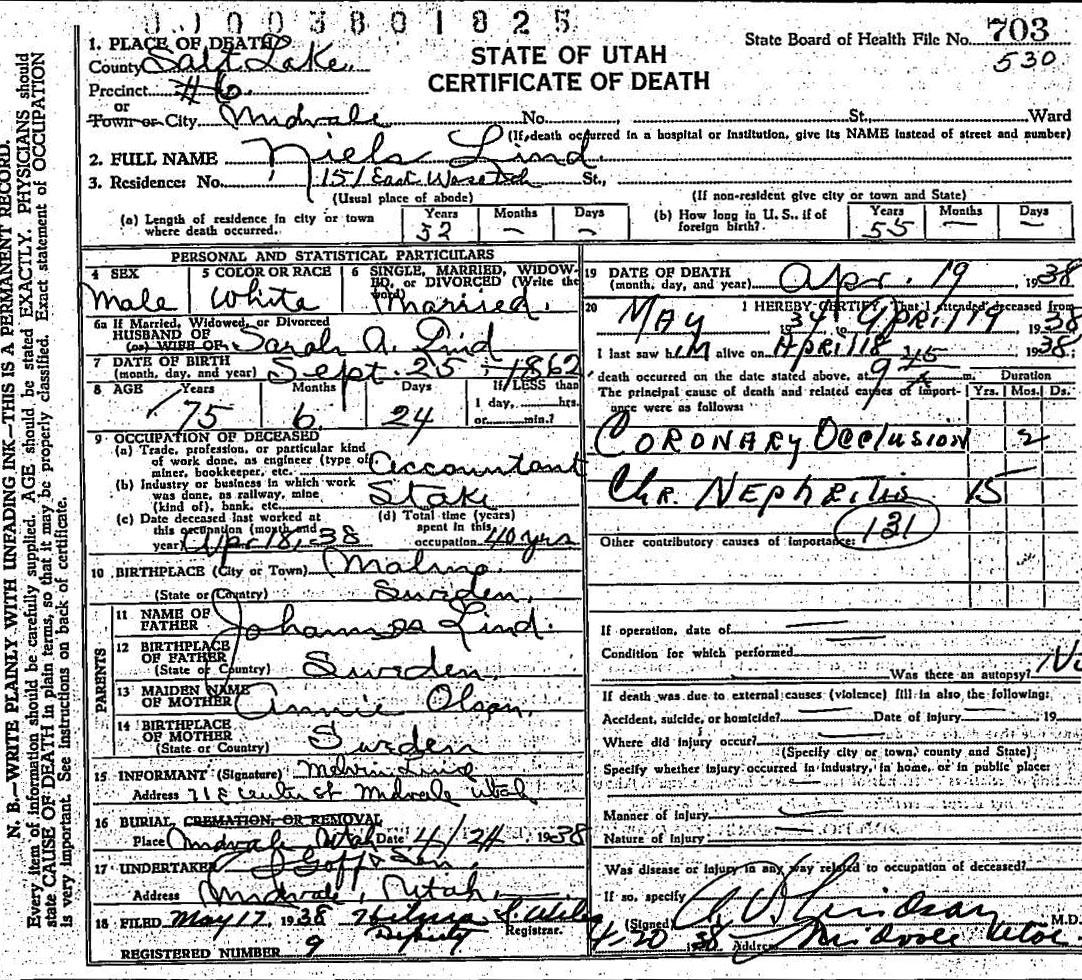 0 0 3 8 0 1 8 2 5
STATE OF UTAH
CERTIFICATE OF DEATH
State Board of Health File No. 703
530
1. PLACE OF DEATH
County Salt Lake
Precinct #6
or
Town or City Midvale No. St., Ward
(If death occurred in a hospital or institution, give its NAME instead of street and number)
2. FULL NAME Niels Lind.
3. Residence: No. 151 East Wasatch St.,
(Usual place of abode) (If non-resident give city or town and State)
(a) Length of residence in city or town where death occurred. Years 52 Months — Days —
(b) How long in U. S., if of foreign birth? Years 55 Months — Days —
PERSONAL AND STATISTICAL PARTICULARS
4 SEX Male
5 COLOR OR RACE White
6 SINGLE, MARRIED, WIDOWED, or DIVORCED (Write the word) Married.
6a If Married, Widowed, or Divorced
HUSBAND OF
(or) WIFE OF Sarah A. Lind
7 DATE OF BIRTH
(month, day, and year) Sept. 25, 1862
8 AGE Years 75 Months 6 Days 24 If LESS than 1 day, hrs. or min.?
9 OCCUPATION OF DECEASED
(a) Trade, profession, or particular kind of work done, as engineer (type of miner, bookkeeper, etc. Accountant
(b) Industry or business in which work was done, as railway, mine (kind of), bank, etc.
(c) Date deceased last worked at this occupation (month and year) Apr 18, 38
(d) Total time (years) spent in this occupation 40 yrs
10 BIRTHPLACE (City or Town) Malmo.
(State or Country) Sweden.
PARENTS
11 NAME OF FATHER Johannas Lind.
12 BIRTHPLACE OF FATHER
(State or Country) Sweden.
13 MAIDEN NAME OF MOTHER Annie Olson.
14 BIRTHPLACE OF MOTHER
(State or Country) Sweden
15 INFORMANT (Signature) Melvin Lind
Address 71 E Center St Midvale Utah
16 BURIAL, CREMATION, OR REMOVAL
Place Midvale, Utah Date 4/24 1938
17 UNDERTAKER Goff & Son
Address Midvale, Utah.
18 FILED May 17, 1938
Deputy Registrar.
REGISTERED NUMBER 9
19 DATE OF DEATH
(month, day, and year) Apr. 19, 1938
20 I HEREBY CERTIFY, That I attended deceased from
May 1937 to April 19 1938
I last saw him alive on April 18 1938;
death occurred on the date stated above, at 9 45 m. Duration
The principal cause of death and related causes of importance were as follows: Yrs. Mos. Ds.
CORONARY OCCLUSION 2
CHR. NEPHRITIS 15
131
Other contributory causes of importance:
If operation, date of —
Condition for which performed —
Was there an autopsy?
If death was due to external causes (violence) fill in also the following:
Accident, suicide, or homicide? — Date of injury — 19
Where did injury occur? —
(Specify city or town, county and State)
Specify whether injury occurred in industry, in home, or in public place:
Manner of injury —
Nature of injury —
Was disease or injury in any way related to occupation of deceased?
If so, specify
(Signed) Lindsay M.D.
4-20 1938 Address Midvale Utah
N. B.—WRITE PLAINLY WITH UNFADING INK—THIS IS A PERMANENT RECORD.
Every item of information should be carefully supplied. AGE should be stated EXACTLY. PHYSICIANS should
state CAUSE OF DEATH in plain terms, so that it may be properly classified. Exact statement of OCCUPATION
is very important. See instructions on back of certificate.